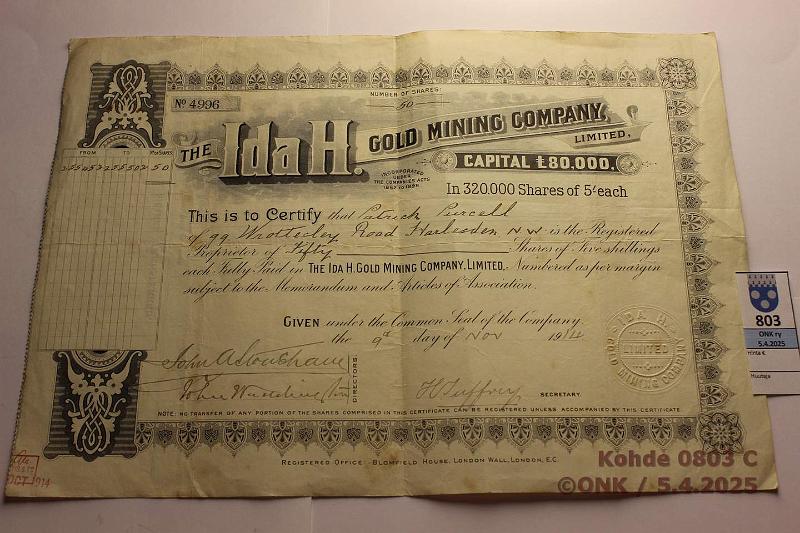 NUMBER OF SHARES:
50
No 4996
THE Ida H. GOLD MINING COMPANY, LIMITED.
INCORPORATED UNDER THE COMPANIES ACTS
CAPITAL £80,000.
In 320.000 Shares of 5/- each
FROM TO No OF SHARES
50
This is to Certify that Patrick Purcell
of 99 Wrottesley Road Harlesden N W is the Registered
Proprietor of Fifty Shares of Five shillings
each Fully Paid in THE IDA H. GOLD MINING COMPANY, LIMITED. Numbered as per margin
subject to the Memorandum and Articles of Association.
GIVEN under the Common Seal of the Company
the 9th day of Nov 1914
DIRECTORS
SECRETARY.
IDA H.
LIMITED
GOLD MINING COMPANY
NOTE: NO TRANSFER OF ANY PORTION OF THE SHARES COMPRISED IN THIS CERTIFICATE CAN BE REGISTERED UNLESS ACCOMPANIED BY THIS CERTIFICATE.
REGISTERED OFFICE - BLOMFIELD HOUSE, LONDON WALL, LONDON, E.C.
OCT 1914
803
ONK ry
5.4.2025
Hinta €
Huutaja
Kohde 0803 C
©ONK / 5.4.2025